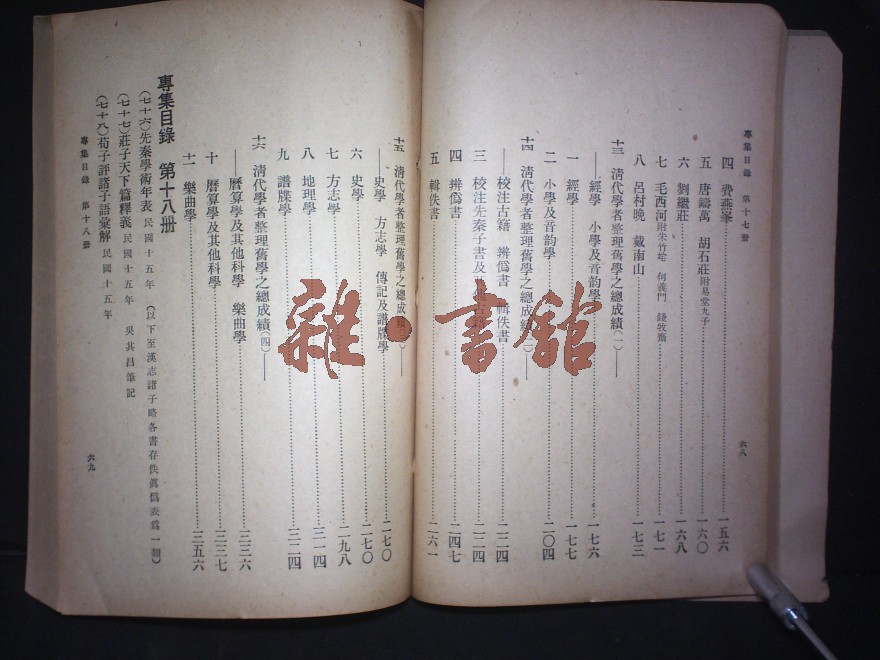 專集目錄 第十七册
六八
四 費燕峯 一五六
五 唐鑄萬 胡石莊附易堂九子 一六〇
六 劉繼莊 一六八
七 毛西河附朱竹垞 何義門 錢牧齋 一七一
八 呂村晚 戴南山 一七三
十三 清代學者整理舊學之總成績(一)——
——經學 小學及音韻學 一七六
一 經學 一七七
二 小學及音韻學 二〇四
十四 清代學者整理舊學之總成績
——校注古籍 辨僞書 輯佚書 二二四
三 校注先秦子書及 二二四
四 辨僞書 二四七
五 輯佚書 二六一
十五 清代學者整理舊學之總成績
——史學 方志學 傳記及譜牒學 二七〇
六 史學 二七〇
七 方志學 二九八
八 地理學 三一四
九 譜牒學 三二四
十六 清代學者整理舊學之總成績(四)——
——曆算學及其他科學 樂曲學 三三六
十 曆算學及其他科學 三三七
十一 樂曲學 三五六
專集目錄 第十八册
(七十六)先秦學術年表 民國十五年 (以下至漢志諸子略各書存佚眞僞表爲一類)
(七十七)莊子天下篇釋義 民國十五年 吳其昌筆記
(七十八)荀子評諸子語彙解 民國十五年
專集目錄 第十八册
六九
雜·書館